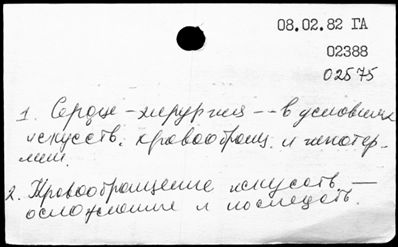 08.02.82 ГА
02388
02575
1. Сердце – хирургия -- в условиях
искусств. кровообращ. и гипотер-
мии.
2. Кровообращение искусств. —
осложнения и последств.